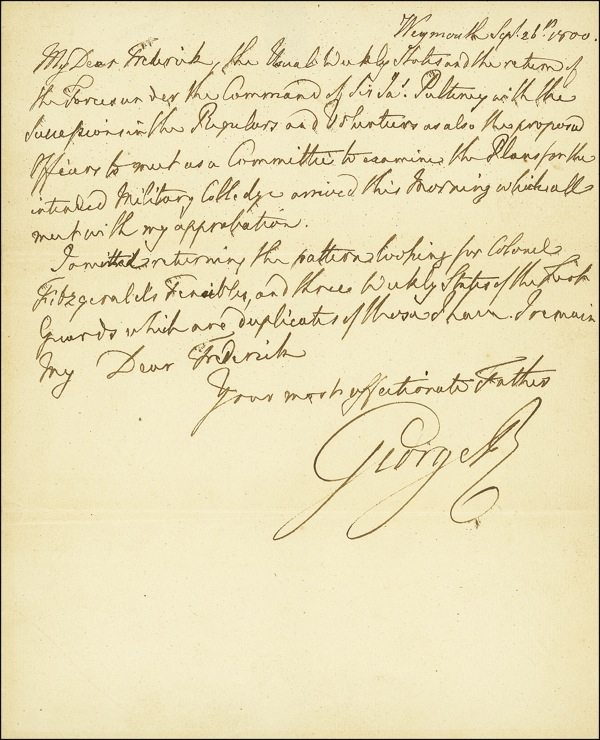 Weymouth Sept. 26th 1800.
My Dear Frederick, the Usual Weekly States and the return of
the Forces under the Command of Sir Jas. Pulteney with the
Successions in the Regulars and Volunteers as also the proposed
Officers to meet as a Committee to examine the Plans for the
intended Military Colledge arrived this Morning which all
meet with my approbation.
I omitted returning the pattern for Colonel
Fitzgerald's Fencibles, and three Weekly States of the Foot
Guards which are duplicates of those I have. I remain
My Dear Frederick
Your most affectionate Father
George R